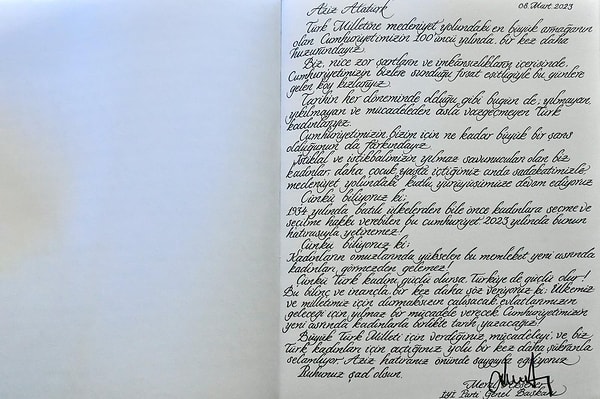 Aziz Atatürk 08. Mart. 2023
Türk Milletine medeniyet yolundaki en büyük armağanın
olan Cumhuriyetimizin 100'üncü yılında, bir kez daha
huzurundayız.
Biz, nice zor şartların ve imkânsızlıkların içerisinde,
Cumhuriyetimizin bizlere sunduğu fırsat eşitliğiyle bu günlere
gelen köy kızlarıyız.
Tarihin her döneminde olduğu gibi bugün de; yılmayan,
yıkılmayan ve mücadeleden asla vazgeçmeyen Türk
kadınlarıyız.
Cumhuriyetimizin bizim için ne kadar büyük bir şans
olduğunun da farkındayız.
İstiklal ve istikbalimizin yılmaz savunucuları olan biz
kadınlar, daha çocuk yaşta içtiğimiz anda sadakatimizle,
medeniyet yolundaki kutlu yürüyüşümüze devam ediyoruz.
Çünkü biliyoruz ki;
1934 yılında, batılı ülkelerden bile önce kadınlara seçme ve
seçilme hakkı verebilen bu cumhuriyet 2023 yılında bunun
hatırasıyla yetinemez!
Çünkü biliyoruz ki;
Kadınların omuzlarında yükselen bu memleket yeni asrında
kadınları görmezden gelemez!
Çünkü Türk kadını güçlü olursa, Türkiye de güçlü olur!
Bu bilinç ve inançla bir kez daha söz veriyoruz ki: Ülkemiz
ve milletimiz için durmaksızın çalışacak, evlatlarımızın
geleceği için yılmaz bir mücadele verecek, Cumhuriyetimizin
yeni asrında kadınlarla birlikte tarih yazacağız!
Büyük Türk Milleti için verdiğiniz mücadeleyi ve biz
Türk kadınları için açtığınız yolu bir kez daha şükranla
selamlıyor, Aziz hatıranız önünde saygıyla eğiliyoruz.
Ruhunuz şad olsun.
Meral Akşener
İYİ Parti Genel Başkanı